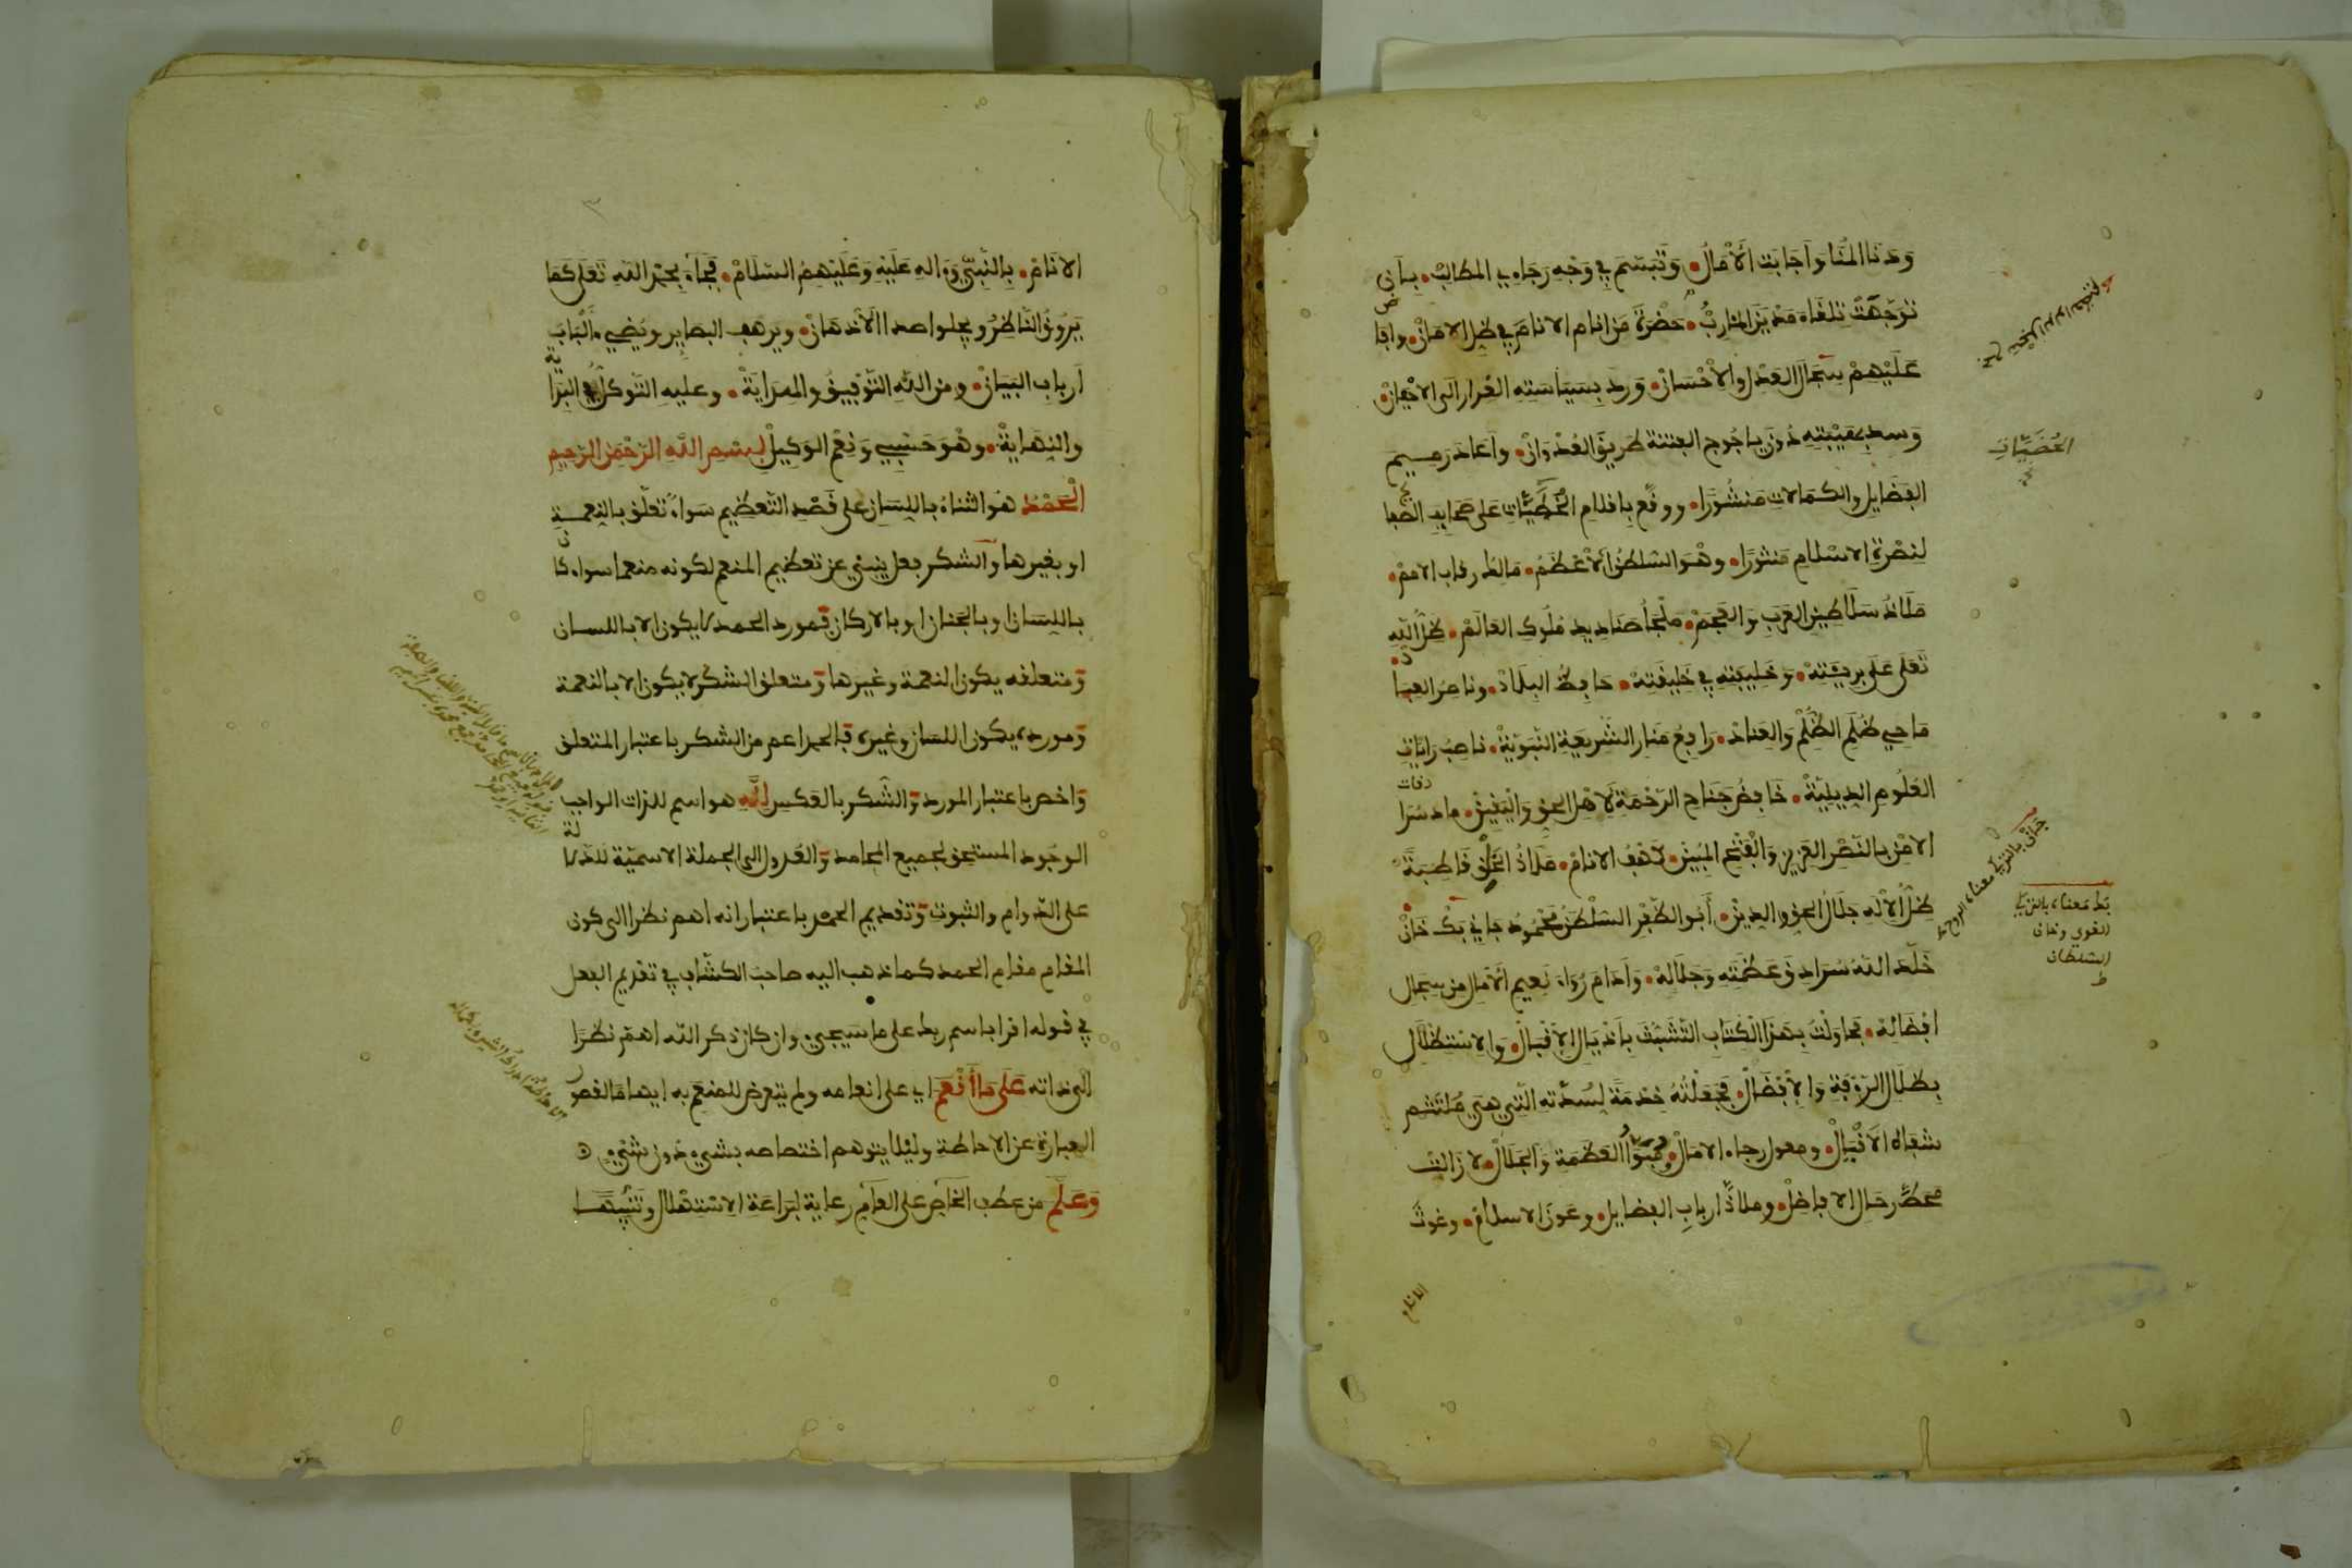 ودنا المنا واجابت الآمال وتبسم في وجه رجاءي المطالب بأني
توجهت تلقاء مدين المآرب حضرة من انام الانام في ظل الامان وافاض
عليهم سجال العدل والاحسان ورد بسياسته الغرار الى الاجفان
وسد بهيبته دون ياجوج الفتنة طريق العدوان واعاد رميم
الفضايل والكمالات منشورا ووقع باقلام الخطيات على صحايف الصفايح
لنصرة الاسلام منثورا وهو السلطن الاعظم مالك رقاب الامم
ملاذ سلاطين العرب والعجم ملجأ صناديد ملوك العالم ظل الله
تعلى على بريته وخليفته في خليقته حافظ البلاد وناصر العباد
ماحي ظلم الظلم والعناد رافع منار الشريعة النبوية ناصب رايات
العلوم الدينية خافض جناح الرحمة لاهل الحق واليقين ماد سرادقات
الامن بالنصر العزيز والفتح المبين كهف الانام ملاذ الخلق قاطبة
ظل الاله جلال الحق والدين أبو الظفر السلطن محمود جاني بك خان
خلد الله سرادق عظمته وجلاله وادام رواء نعيم الآمال من سجال
افضاله فحاولت بهذا الكتاب التشبث باذيال الاقبال والاستظلال
بظلال الرؤفة والافضال فجعلته خدمة لسدته التي هي ملتثم
شفاه الاقبال ومعول رجاء الامال ومبوأ العظمة والجلال لا زالت
محط رحال الافاضل وملاذ ارباب الفضايل وعون الاسلام وغوث
الانام
العضيات
بك معناه بالتركي
القوي وخان
السلطان
ط
جاني بالتركي معناه الروح ط
الانام بالنبي وءاله عليه وعليهم السلام فجاء بحمد الله تعلى كما
يروق النواظر ويجلوا صدا الاذهان ويرهف البصاير ويضيء ألباب
أرباب البيان ومن الله التوفيق والهداية وعليه التوكل في البداية
والنهاية وهو حسبي ونعم الوكيل بسم الله الرحمن الرحيم
الحمد هو الثناء باللسان على قصد التعظيم سواء تعلق بالنعمة
او بغيرها والشكر فعل ينبئ عن تعظيم المنعم لكونه منعما سواء كان
باللسان او بالجنان او بالاركان فمورد الحمد لا يكون الا باللسان
ومتعلقه يكون النعمة وغيرها ومتعلق الشكر لا يكون الا بالنعمة
ومورده يكون اللسان وغيره فالحمد اعم من الشكر باعتبار المتعلق
واخص باعتبار المورد والشكر بالعكس لله هو اسم للذات الواجب
الوجود المستحق لجميع المحامد والعدول الى الجملة الاسمية للدلالة
على الدوام والثبوت وتقديم الحمد باعتبار انه اهم نظرا الى كون
المقام مقام الحمد كما ذهب اليه صاحب الكشاف في تقديم الفعل
في قوله اقرا باسم ربك على ما سيجيء وان كان ذكر الله اهم نظرا
الى ذاته على ما أنعم اي على انعامه ولم يتعرض للمنعم به ايهاما لقصور
العبارة عن الاحاطة وليلا يتوهم اختصاصه بشيء دون شيء
وعلم من عطف الخاص على العام رعاية لبراعة الاستهلال وتنبيها